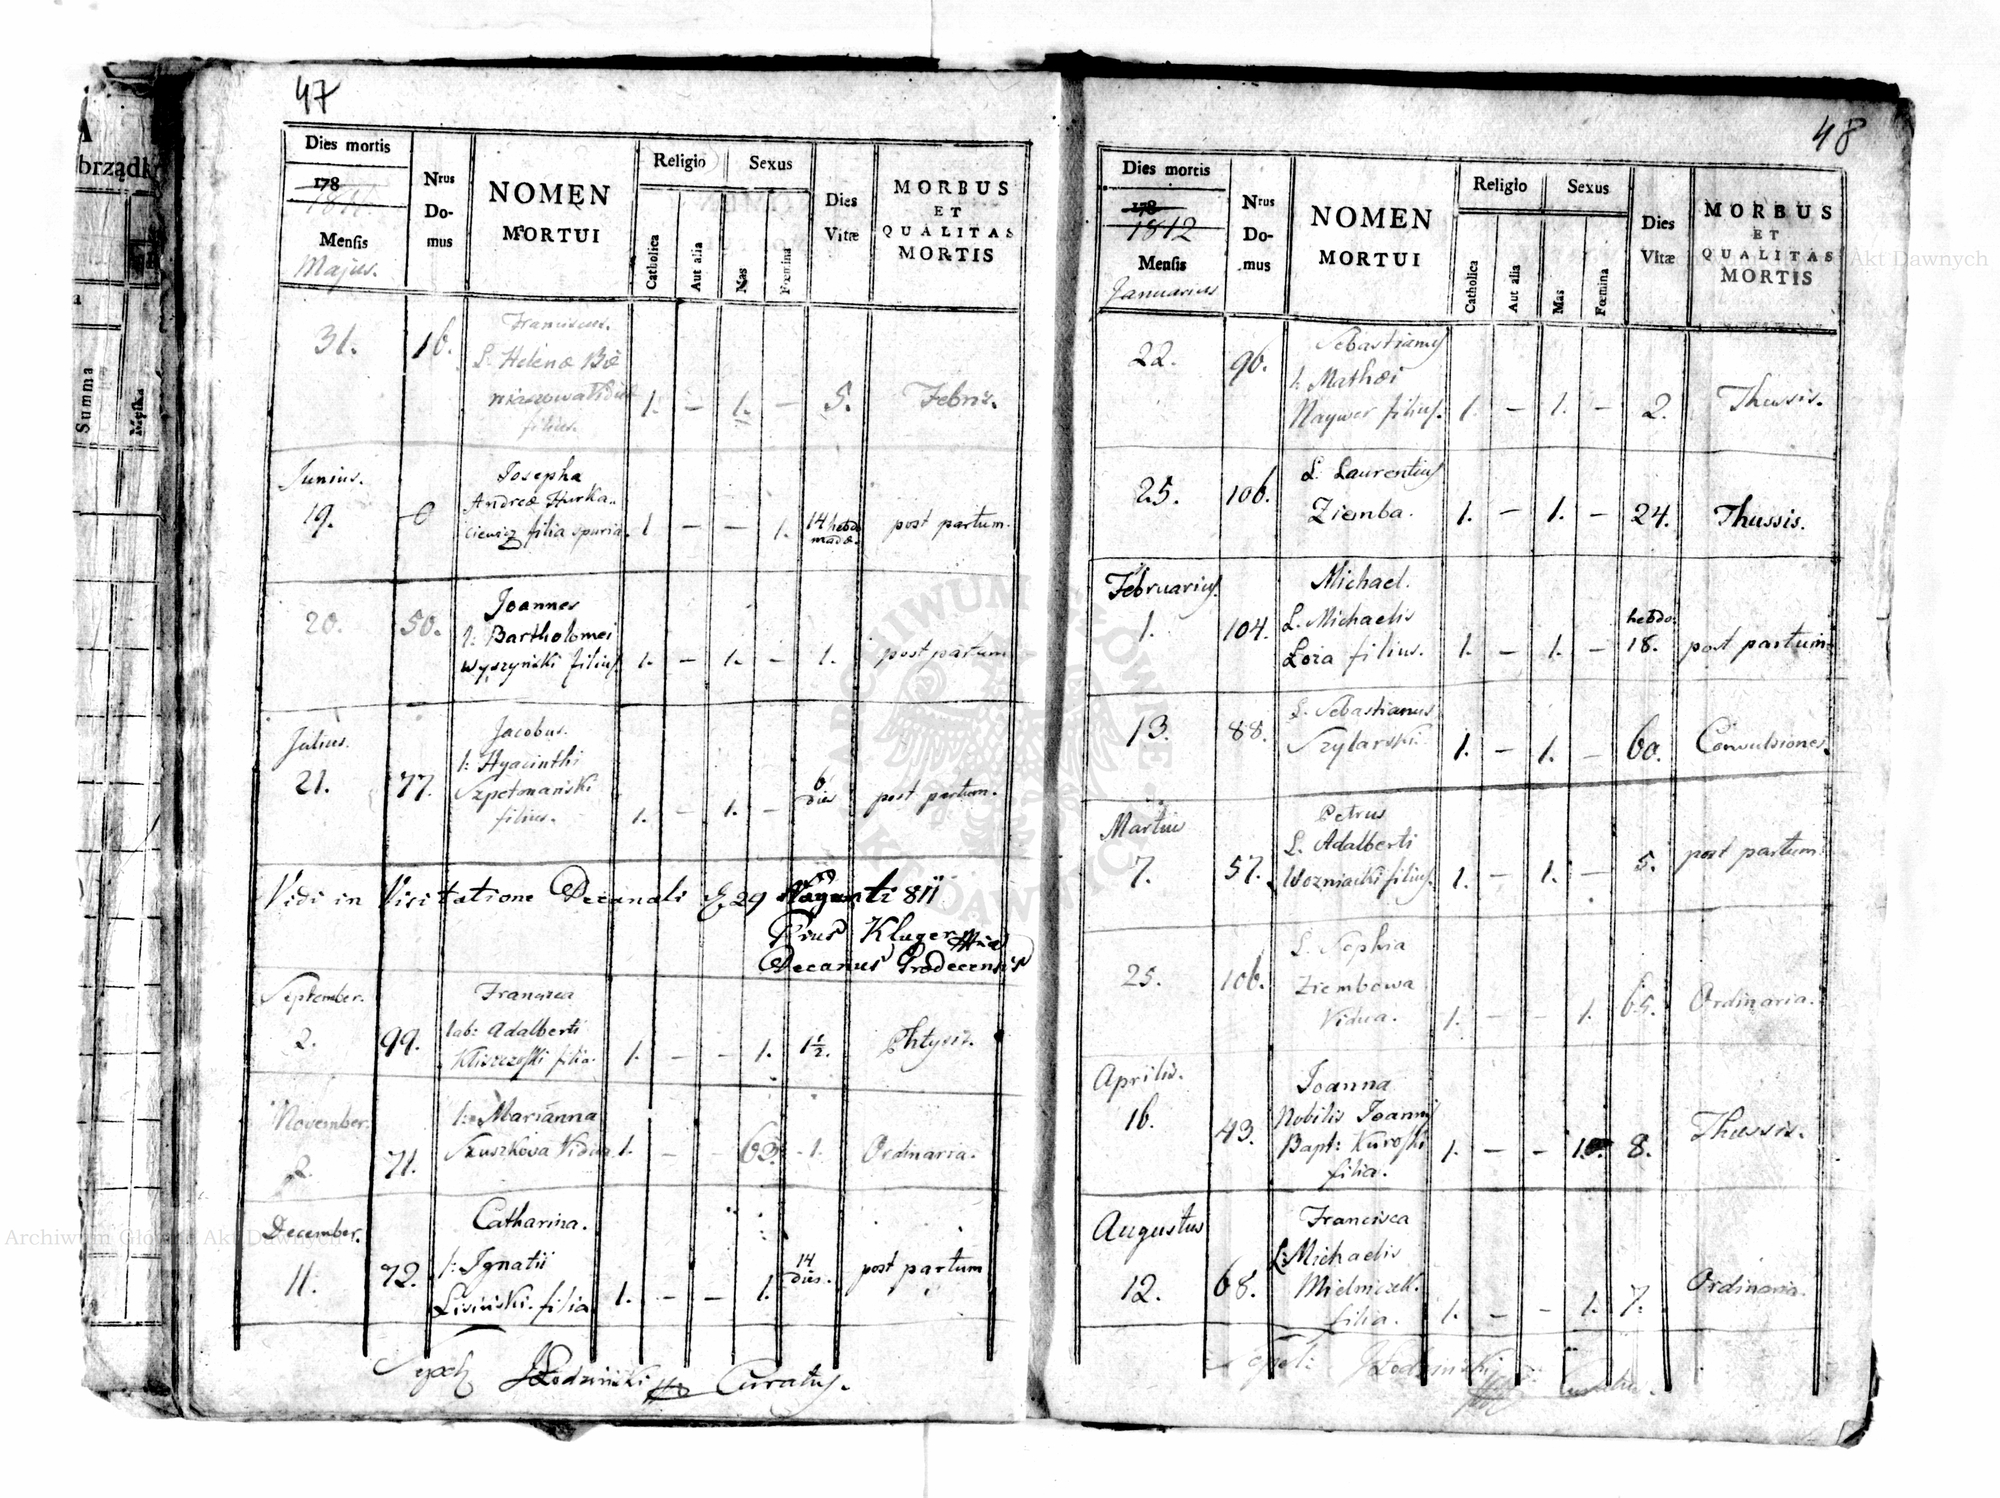 47
Dies mortis
178
1811.
Mensis
Majus.
Nrus
Do-
mus
NOMEN
MORTUI
Religio
Catholica
Aut alia
Sexus
Mas
Fœmina
Dies
Vitæ
MORBUS
ET
QUALITAS
MORTIS
31.
16.
Franciscus.
L. Helenæ Bie
Vidua
filius.
1. — 1. — 5. Febris.
Junius.
19.
Josepha
Andreæ Hurka..
ciewicz filia spuria.
1 — — 1. 14 hebdo
madæ. post partum.
20. 50.
Joannes
l: Bartholomei
Wyszyński filius.
1. — 1. — 1. post partum
Julius.
21. 77.
Jacobus.
l: Hyacinthi
Szpetmański
filius.
1. — 1. — 6
dies post partum.
Vidi in Visitatione Decanali d. 29 Augusti 811
Pius Kluger
Decanus Grodecensis
September.
2. 99.
Francisca
lab: Adalberti
filia.
1. — — 1. 1½. Phtysis.
November.
2. 71.
l: Marianna
Szuszkowa Vidua
1. — — 63. - 1. Ordinaria.
December.
11. 72.
Catharina.
l: Ignatii
Lisiński. filia
1. — — 1. 14
dies. post partum
Sepel: JŁodziński Curatus.
48
Dies mortis
178
1812
Mensis
Januarius
Nrus
Do-
mus
NOMEN
MORTUI
Religio
Catholica
Aut alia
Sexus
Mas
Fœmina
Dies
Vitæ
MORBUS
ET
QUALITAS
MORTIS
22. 96.
Sebastianus
l: Mathæi
Naywer filius.
1. — 1. — 2. Thussis.
25. 106.
L. Laurentius
Ziemba.
1. — 1. — 24. Thussis.
Februarius.
1. 104.
Michael.
L. Michaelis
Loza filius.
1. — 1. — hebdo
18. post partum
13. 88.
L. Sebastianus
Szylarski.
1. — 1. — 60. Convulsiones.
Martius
7. 57.
Petrus
L. Adalberti
Wozniacki filius.
1. — 1. — 5. post partum
25. 106.
L. Sophia
Ziembowa
Vidua.
1. — — 1. 65. Ordinaria.
Aprilis.
16. 43.
Joanna
Nobilis Joannis
Bapt: Kuroski
filia.
1. — — 1. 8. Thussis.
Augustus
12. 68.
Francisca
L: Michaelis
Mielniczek.
filia.
1. — — 1. 7. Ordinaria.
Sepel: JŁodziński
brządk
Summa
Archiwum Główne Akt Dawnych
ARCHIWUM GŁÓWNE AKT DAWNYCH
Akt Dawnych